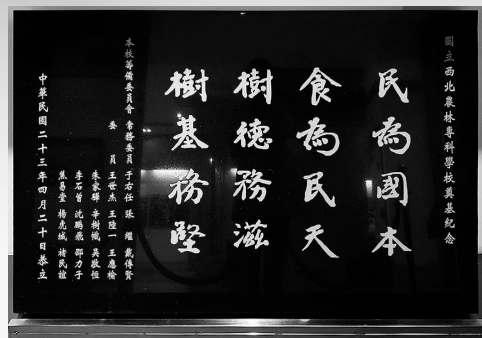 國立西北農林專科學校奠基紀念
民為國本
食為民天
樹德務滋
樹基務堅
本校籌備委員會 常務委員 于右任 張繼 戴傳賢
委員 王世杰 王陸一 王應榆
朱家驊 辛樹幟 吳敬恒
李石曾 沈鵬飛 邵力子
焦易堂 楊虎城 褚民誼
中華民國二十三年四月二十日恭立